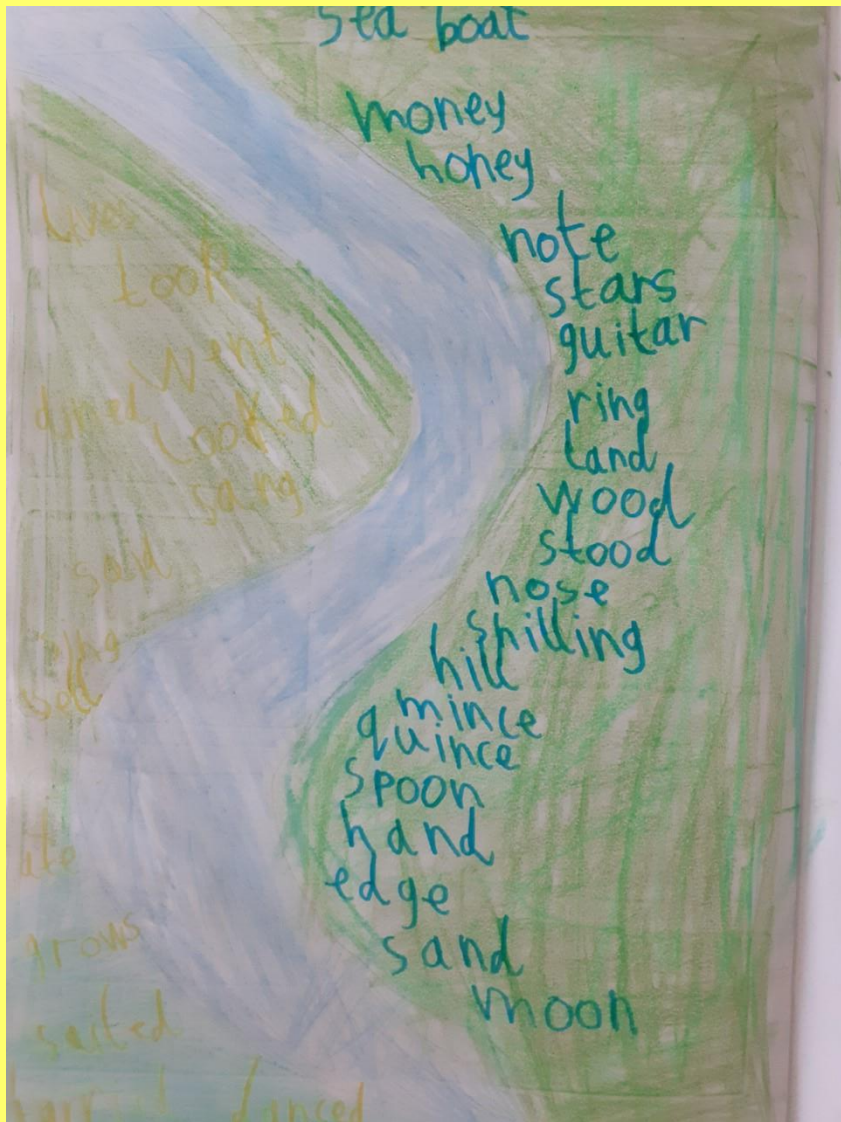 sea boat
money
honey
note
stars
guitar
ring
land
wood
stood
nose
shilling
hill
mince
quince
spoon
hand
edge
sand
moon
took
went
dined
looked
sang
said
grows
danced